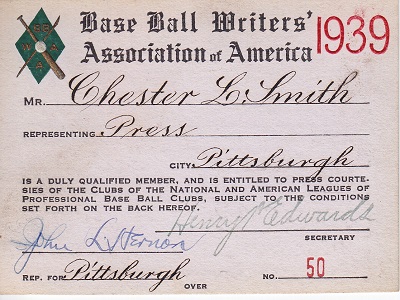 Base Ball Writers'
Association of America
1939
MR. Chester L. Smith
REPRESENTING Press
CITY Pittsburgh
IS A DULY QUALIFIED MEMBER, AND IS ENTITLED TO PRESS COURTE-
SIES OF THE CLUBS OF THE NATIONAL AND AMERICAN LEAGUES OF
PROFESSIONAL BASE BALL CLUBS, SUBJECT TO THE CONDITIONS
SET FORTH ON THE BACK HEREOF.
Henry P Edwards
SECRETARY
John L. Hernon
REP. FOR Pittsburgh
NO. 50
OVER